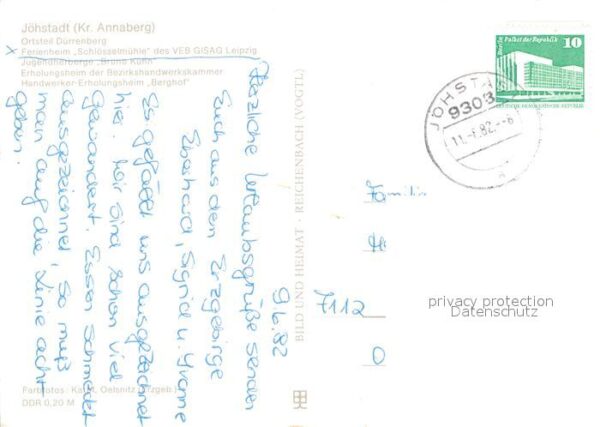 Jöhstadt (Kr. Annaberg)
Ortsteil Dürrenberg
x Ferienheim „Schlösselmühle" des VEB GISAG Leipzig
Jugendherberge „Bruno Kühn"
Erholungsheim der Bezirkshandwerkskammer
Handwerker-Erholungsheim „Berghof"
9.6.82
Herzliche Urlaubsgrüße senden
Euch aus den Erzgebirge
Eberhard, Sigrid u. Yvonne
Es gefällt uns ausgezeichnet
hier. Wir sind schon viel
gewandert. Essen schmeckt
ausgezeichnet, so muß
man auf die Linie acht
geben.
Farbfotos: Oelsnitz (Erzgeb.)
DDR 0,20 M
BILD UND HEIMAT · REICHENBACH (VOGTL)
Berlin Palast der Republik
10
DEUTSCHE DEMOKRATISCHE REPUBLIK
JÖHSTA
9303
82
Familie
H
7112
O
privacy protection
Datenschutz